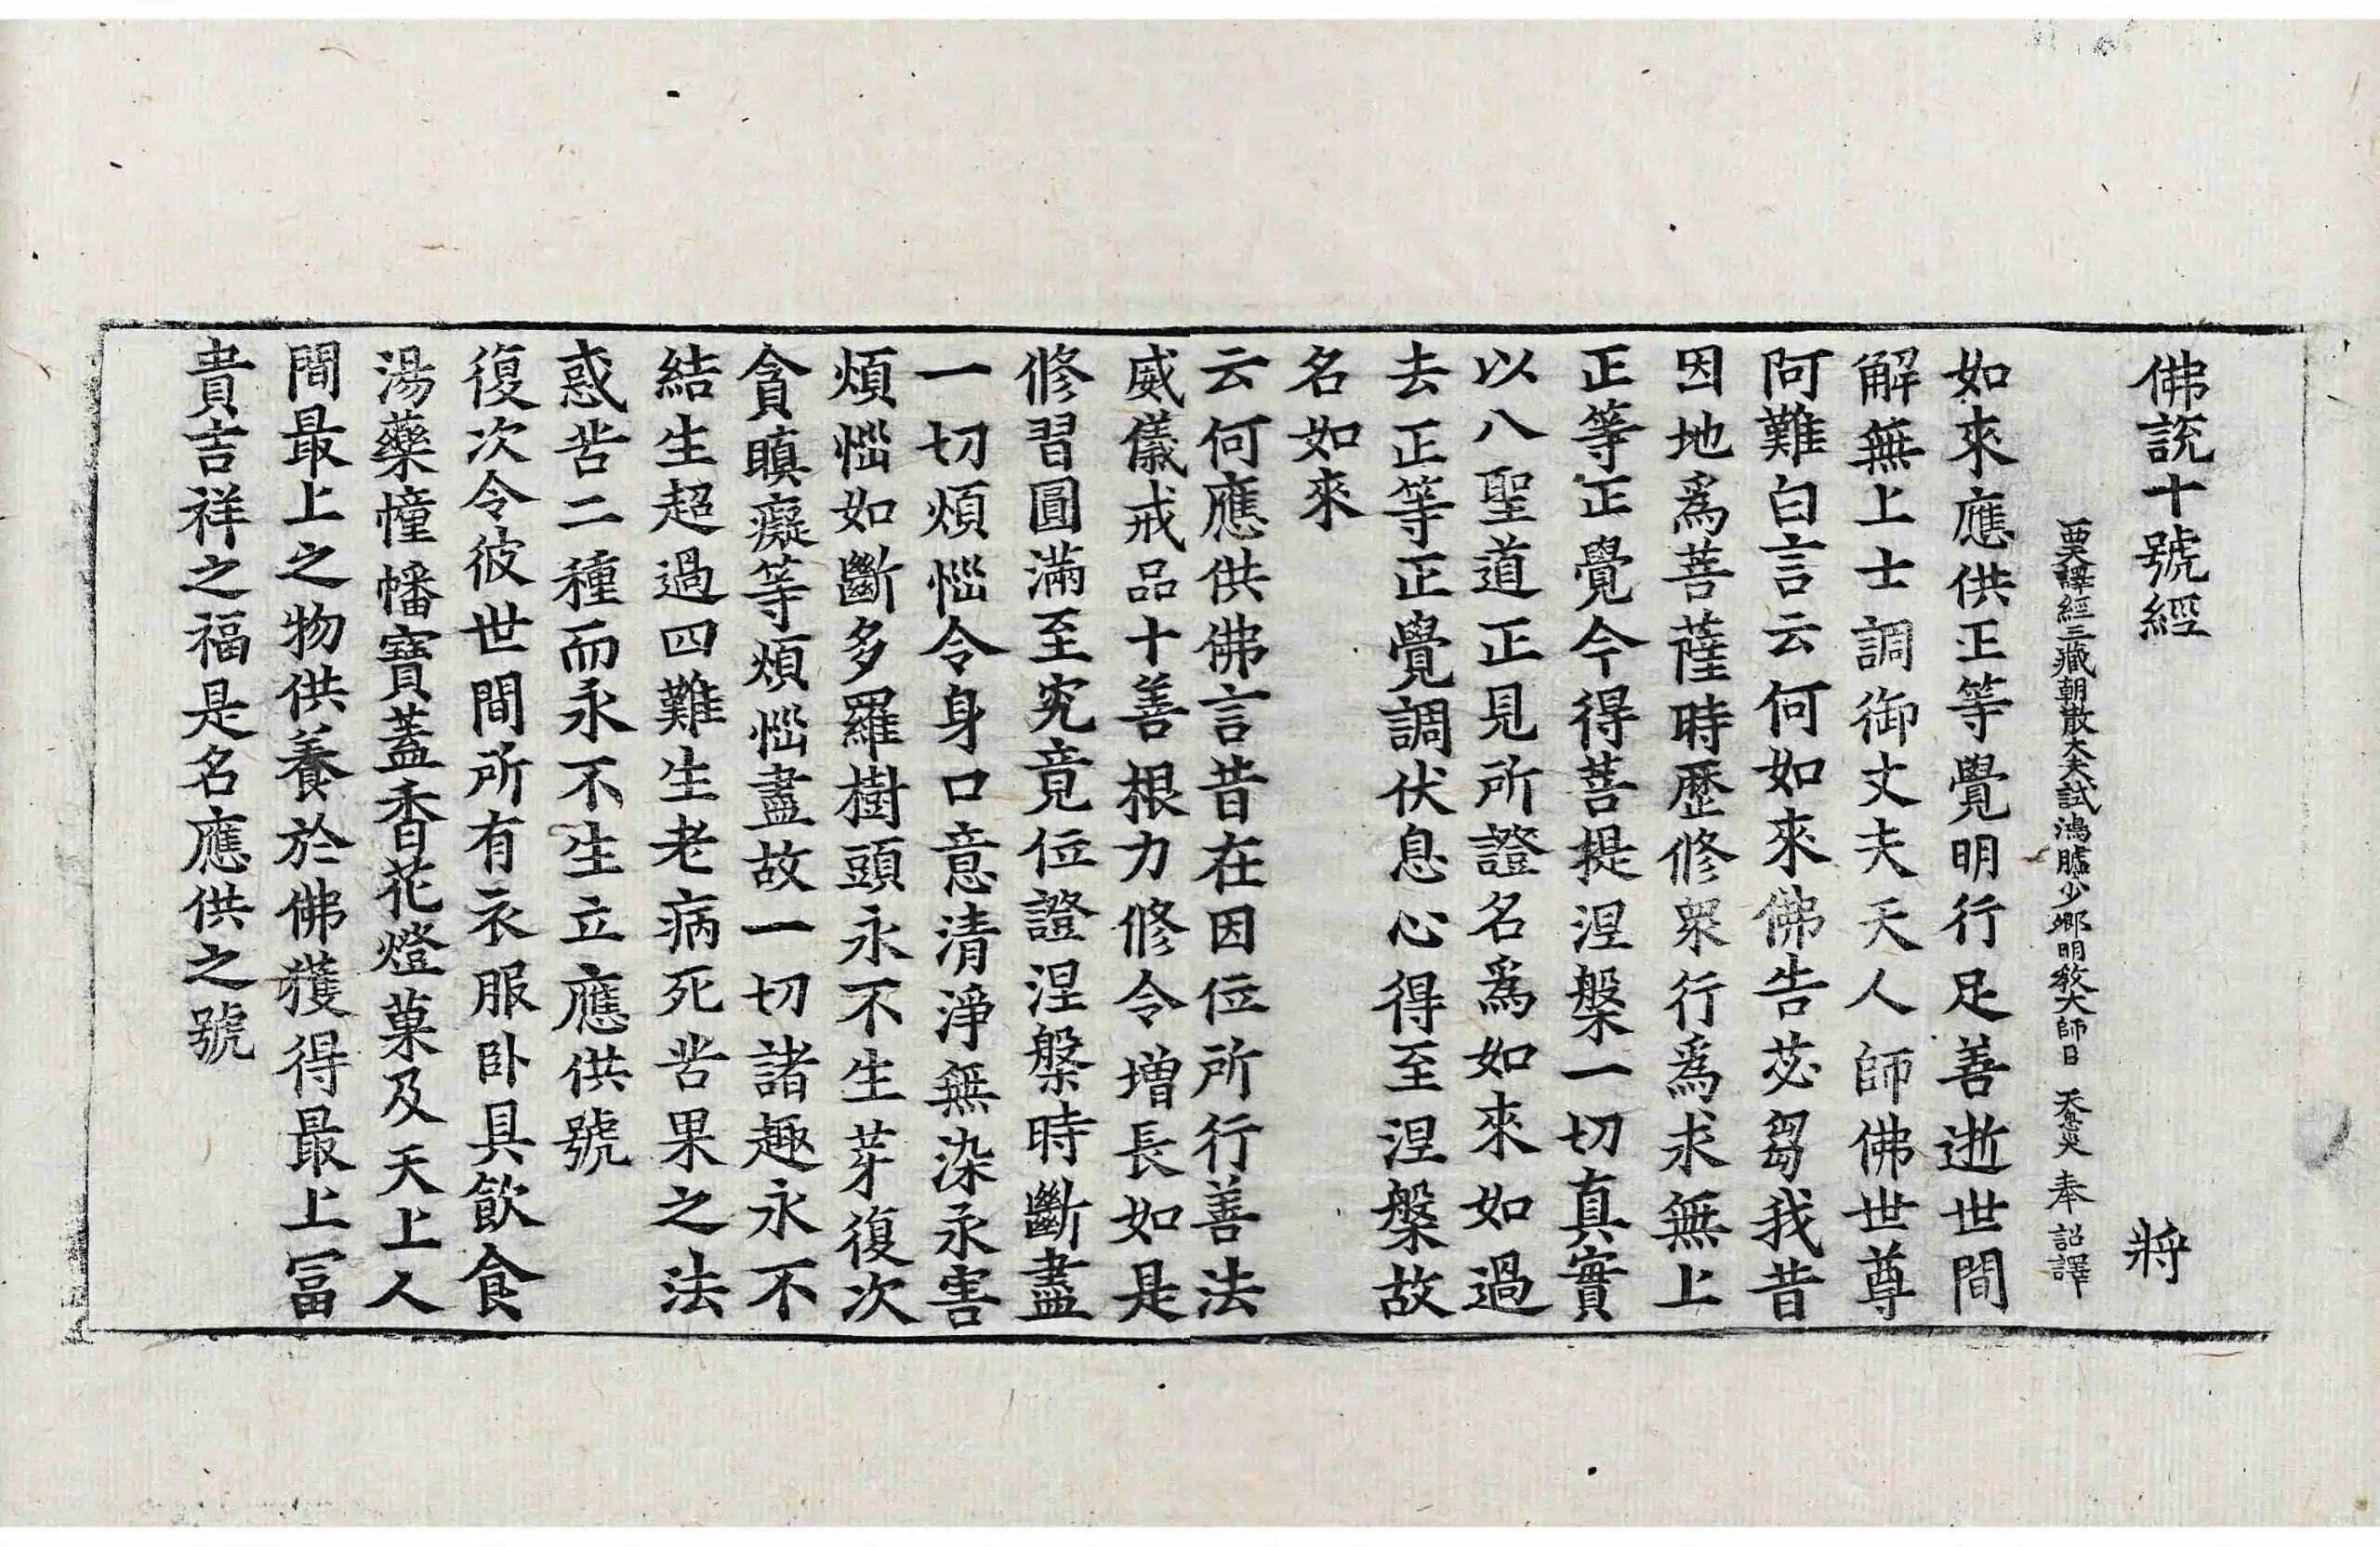 佛說十號經 蔣
西天譯經三藏朝散大夫試鴻臚少卿明敎大師臣 天息災 奉 詔譯
如來應供正等覺明行足善逝世間
解無上士調御丈夫天人師佛世尊
阿難白言云何如來佛告苾芻我昔
因地爲菩薩時歷修衆行爲求無上
正等正覺今得菩提涅槃一切真實
以八聖道正見所證名爲如來如過
去正等正覺調伏息心得至涅槃故
名如來
云何應供佛言昔在因位所行善法
威儀戒品十善根力修令增長如是
修習圓滿至究竟位證涅槃時斷盡
一切煩惱令身口意清淨無染永害
煩惱如斷多羅樹頭永不生芽復次
貪瞋癡等煩惱盡故一切諸趣永不
結生超過四難生老病死苦果之法
惑苦二種而永不生立應供號
復次令彼世間所有衣服卧具飮食
湯藥幢幡寶蓋香花燈菓及天上人
間最上之物供養於佛獲得最上冨
貴吉祥之福是名應供之號